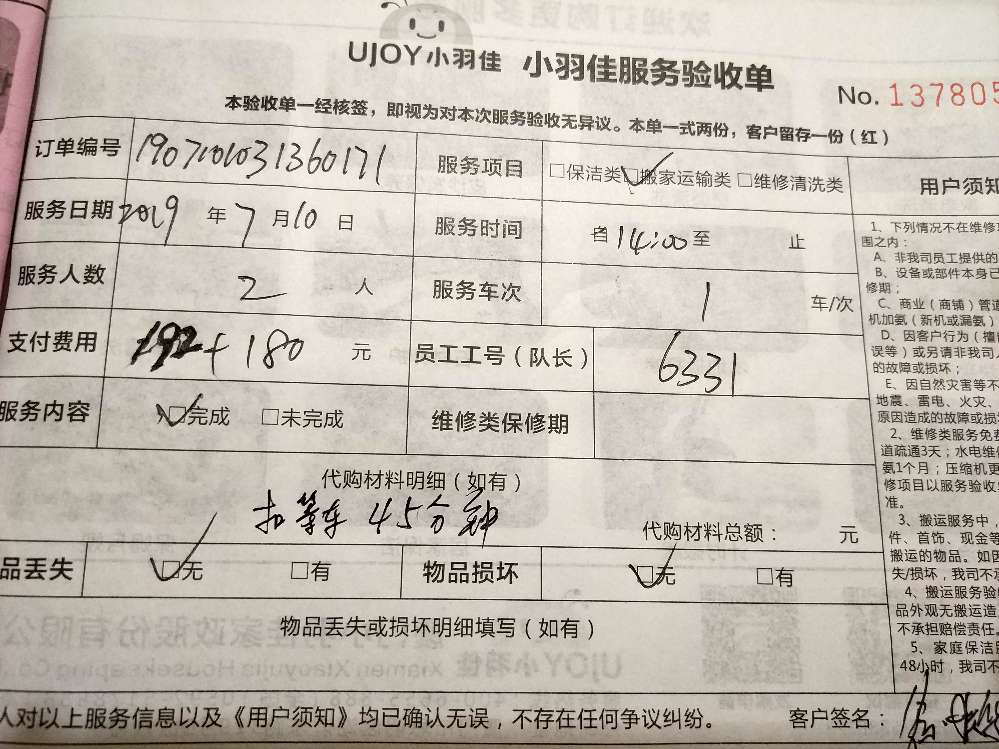 UJOY小羽佳 小羽佳服务验收单
No. 137805
本验收单一经核签，即视为对本次服务验收无异议。本单一式两份，客户留存一份（红）
订单编号 1907101031360171 服务项目 □保洁类 □搬家运输类 □维修清洗类
服务日期 2019 年 7 月 10 日 服务时间 自 14:00 至 止
服务人数 2 人 服务车次 1 车/次
支付费用 192+180 元 员工工号（队长） 6331
服务内容 □完成 □未完成 维修类保修期
代购材料明细（如有）
扣等车 45分钟
代购材料总额： 元
品丢失 □无 □有 物品损坏 □无 □有
物品丢失或损坏明细填写（如有）
人对以上服务信息以及《用户须知》均已确认无误，不存在任何争议纠纷。 客户签名：
用户须知
1、下列情况不在维修
围之内：
A、非我司员工提供的
B、设备或部件本身已
修期；
C、商业（商铺）管道
机加氨（新机或漏氨）
D、因客户行为（擅
误等）或另请非我司
的故障或损坏；
E、因自然灾害等不
地震、雷电、火灾、
原因造成的故障或损
2、维修类服务免费
道疏通3天；水电维
氨1个月；压缩机更
修项目以服务验收
准。
3、搬运服务中，
件、首饰、现金等
搬运的物品。如因
失/损坏，我司不承
4、搬运服务验收
品外观无搬运造
不承担赔偿责任。
5、家庭保洁
48小时，我司不